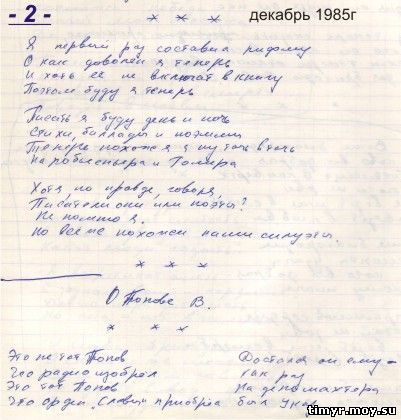 - 2 -
* * *
декабрь 1985г
Я первый раз составил рифму
О как доволен я теперь
И хоть ее не включат в книгу
Поэтом буду я теперь
Писать я буду день и ночь
Стихи, баллады и поэмы
Теперь похож я ну точь в точь
На робеспьера и Гомера
Хотя, по правде, говоря,
Писатели они или поэты?
Не помню я.
Но все же похожи наши силуэты.
* * *
О Попове В.
* * *
Это не тот Попов
Что радио изобрел
Это тот Попов
Что орден "Славы" приобрел
Достался он ему -
как раз
На день шахтера
был указ
timyr.moy.su